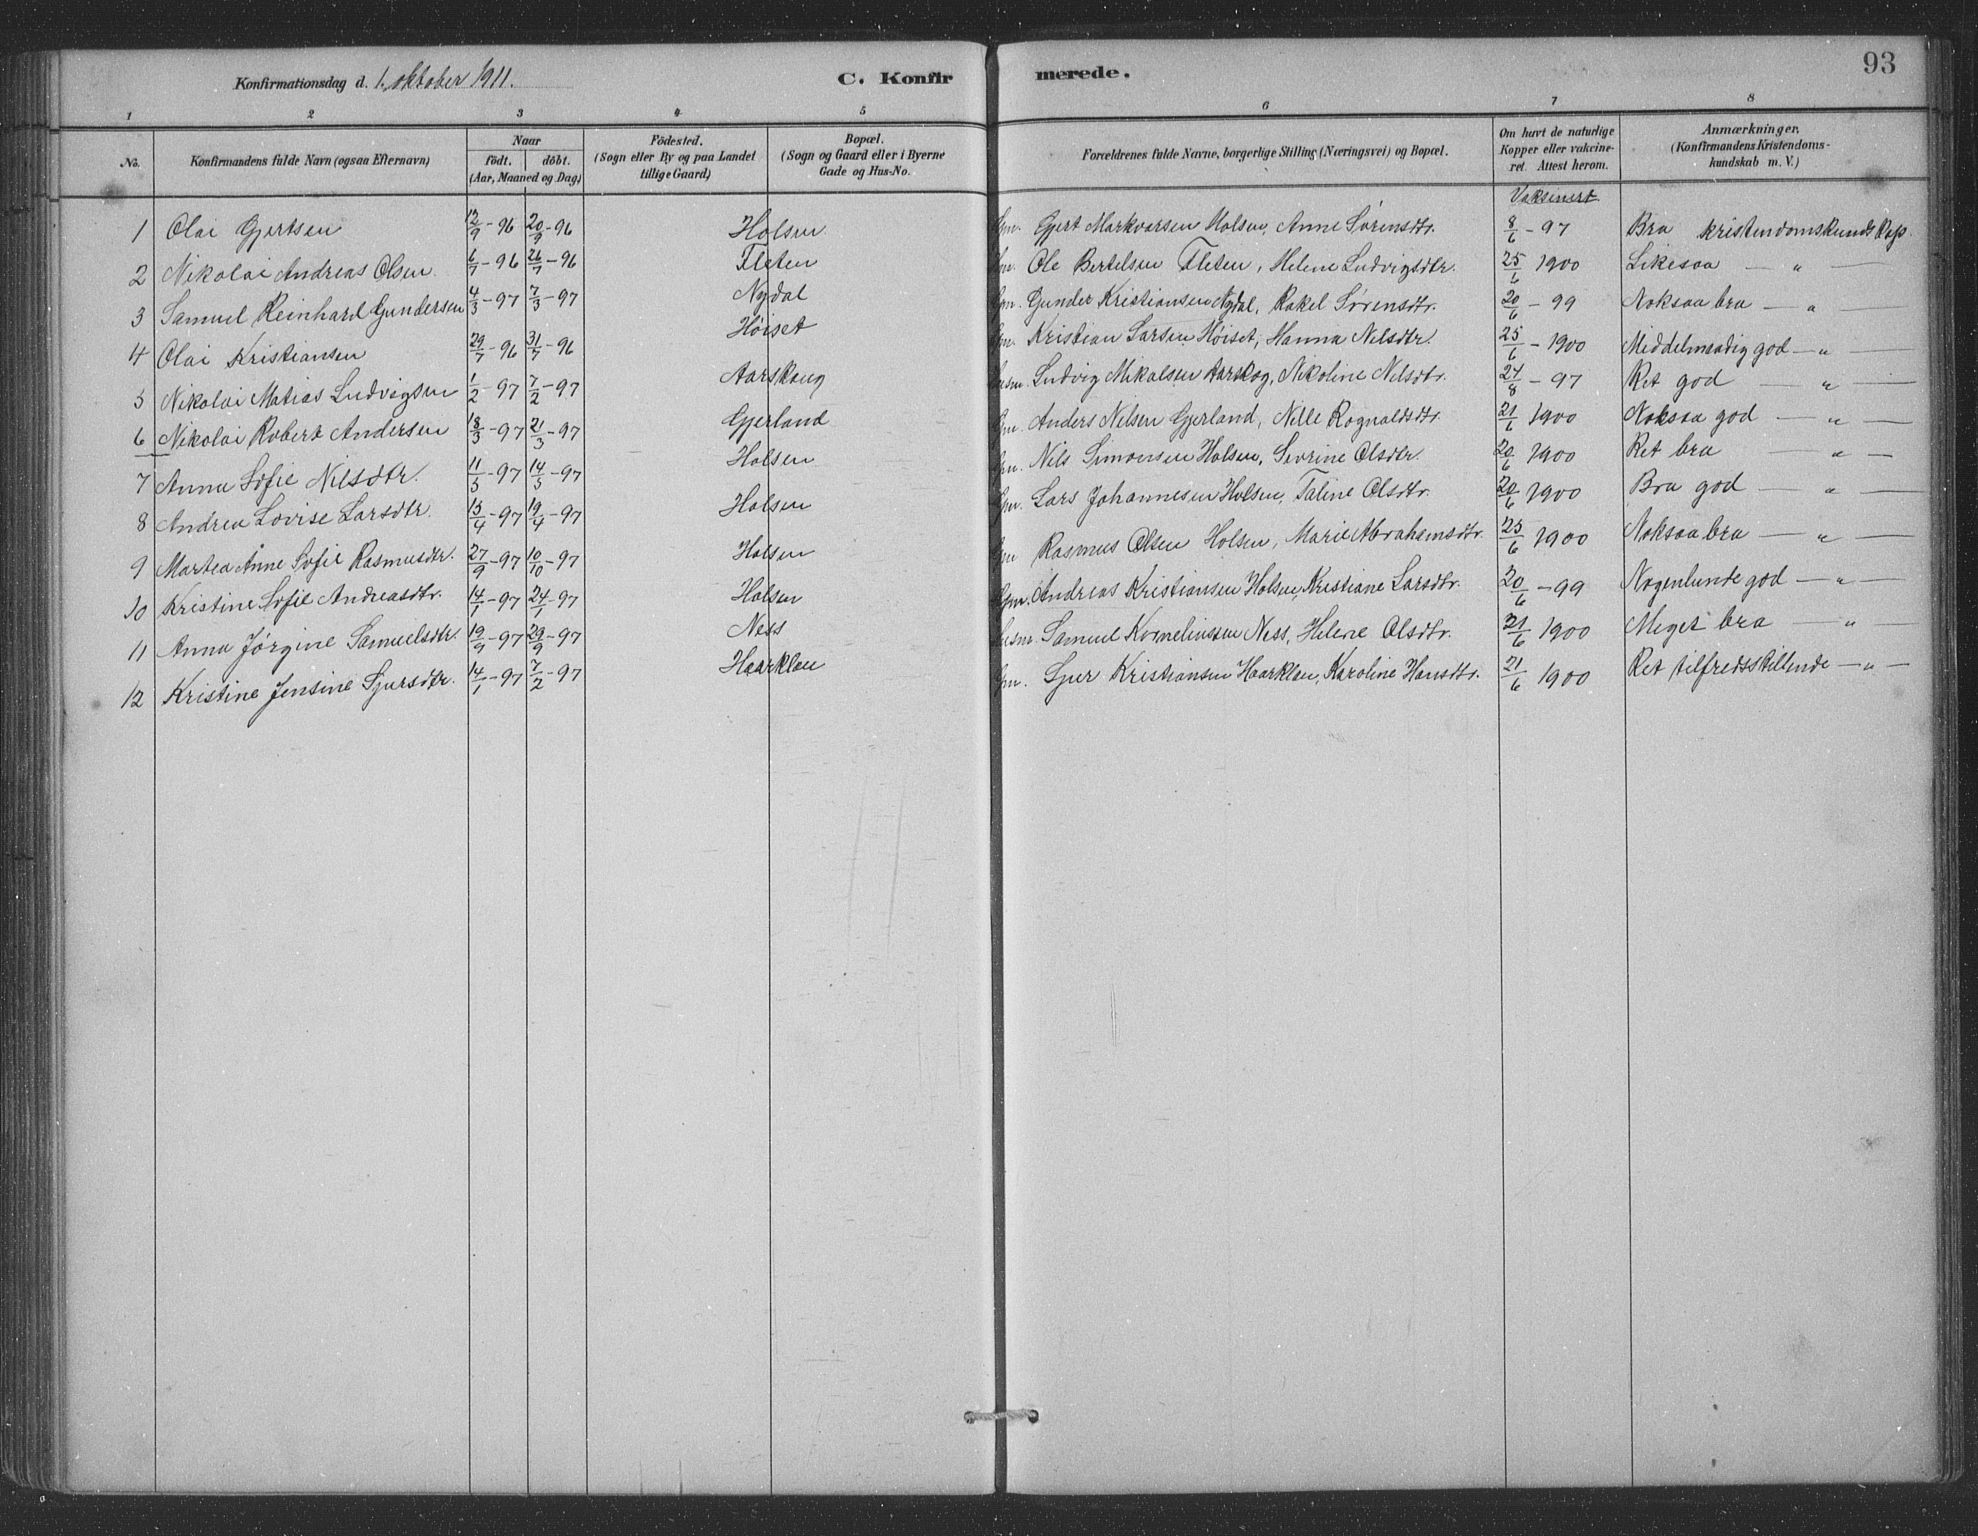 93
Konfirmationsdag d. 1. oktober 1911.
C. Konfirmerede.
1 2 3 4 5 6 7 8
No. Konfirmandens fulde Navn (ogsaa Efternavn) Naar født. døbt. (Aar, Maaned og Dag) Födested. (Sogn eller By og paa Landet tillige Gaard) Bopæl. (Sogn og Gaard eller i Byerne Gade og Hus-No. Forældrenes fulde Navne, borgerlige Stilling (Næringsvei) og Bopæl. Om havt de naturlige Kopper eller vakcineret Attest herom. Anmærkninger. (Konfirmandens Kristendomskundskab m. V.)
Vaksinert
1 Olai Gjertsen 12/9-96 20/9-96 Holsen Gm. Gjert Markvorsen Holsen, Anne Sørensdtr. 8/6-97 Bra kristendomskundskap.
2 Nikolai Andreas Olsen 6/7-96 26/7-96 Fleten Gm. Ole Bertelsen Fleten, Helene Ludvigsdtr. 25/6 1900 Likesaa — „ —
3 Samuel Reinhard Gundersen 4/3-97 7/3-97 Nydal Gm. Gunder Kristiansen Nydal, Rakel Sørensdtr. 20/6-99 Noksaa bra — „ —
4 Olai Kristiansen 29/7-96 31/7-96 Høiset Gm. Kristian Larsen Høiset, Hanna Nilsdtr. 25/6-1900 Middelmaadig god — „ —
5 Nikolai Matias Ludvigsen 1/2-97 7/2-97 Aarskoug Husm. Ludvig Mikalsen Aarskog, Nikoline Nilsdtr. 24/8-97 Ret god — „ —
6 Nikolai Robert Andersen 18/3-97 21/3-97 Gjerland Gm. Anders Nilsen Gjerland, Nille Rognaldsdtr. 21/6 1900 Noksaa god — „ —
7 Anna Sofie Nilsdtr. 11/5-97 14/5-97 Holsen Gm. Nils Simonsen Holsen, Sevrine Olsdtr. 20/6 1900 Ret bra — „ —
8 Andrea Lovise Larsdtr. 13/4-97 19/4-97 Holsen Gm. Lars Johannesen Holsen, Taline Olsdtr. 20/6 1900 Bra god — „ —
9 Martea Anne Sofie Rasmusdtr. 27/9-97 10/10-97 Holsen Gm Rasmus Olsen Holsen, Marie Abrahamsdtr. 25/6 1900 Noksaa bra — „ —
10 Kristine Sofie Andreasdtr. 14/1-97 24/1-97 Holsen Gm. Andreas Kristiansen Holsen, Kristiane Larsdtr. 20/6-99 Nogenlunde god — „ —
11 Anna Jørgine Samuelsdtr. 19/9-97 29/9-97 Ness Husm. Samuel Kornelinssen Ness, Helene Olsdtr. 21/6 1900 Meget bra — „ —
12 Kristine Jensine Sjursdtr. 14/1-97 7/2-97 Haarklau Gm. Sjur Kristiansen Haarklau, Karoline Hansdtr. 21/6 1900 Ret tilfredsstillende — „ —